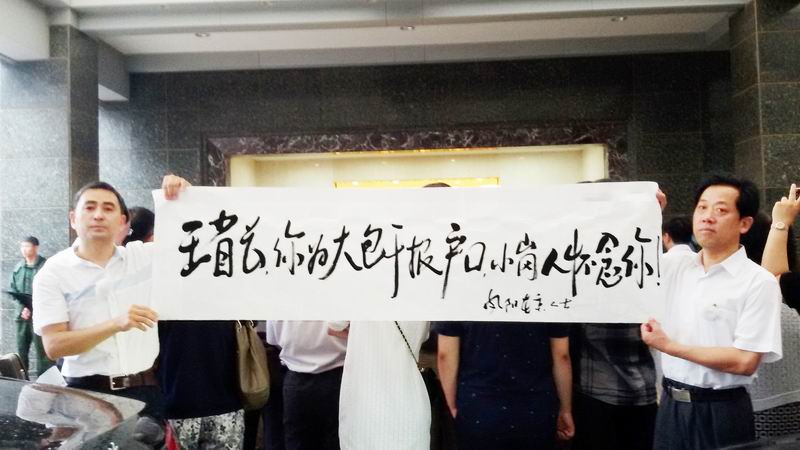 王省长,你为大包干报户口,小岗人怀念你!
凤阳在京人士